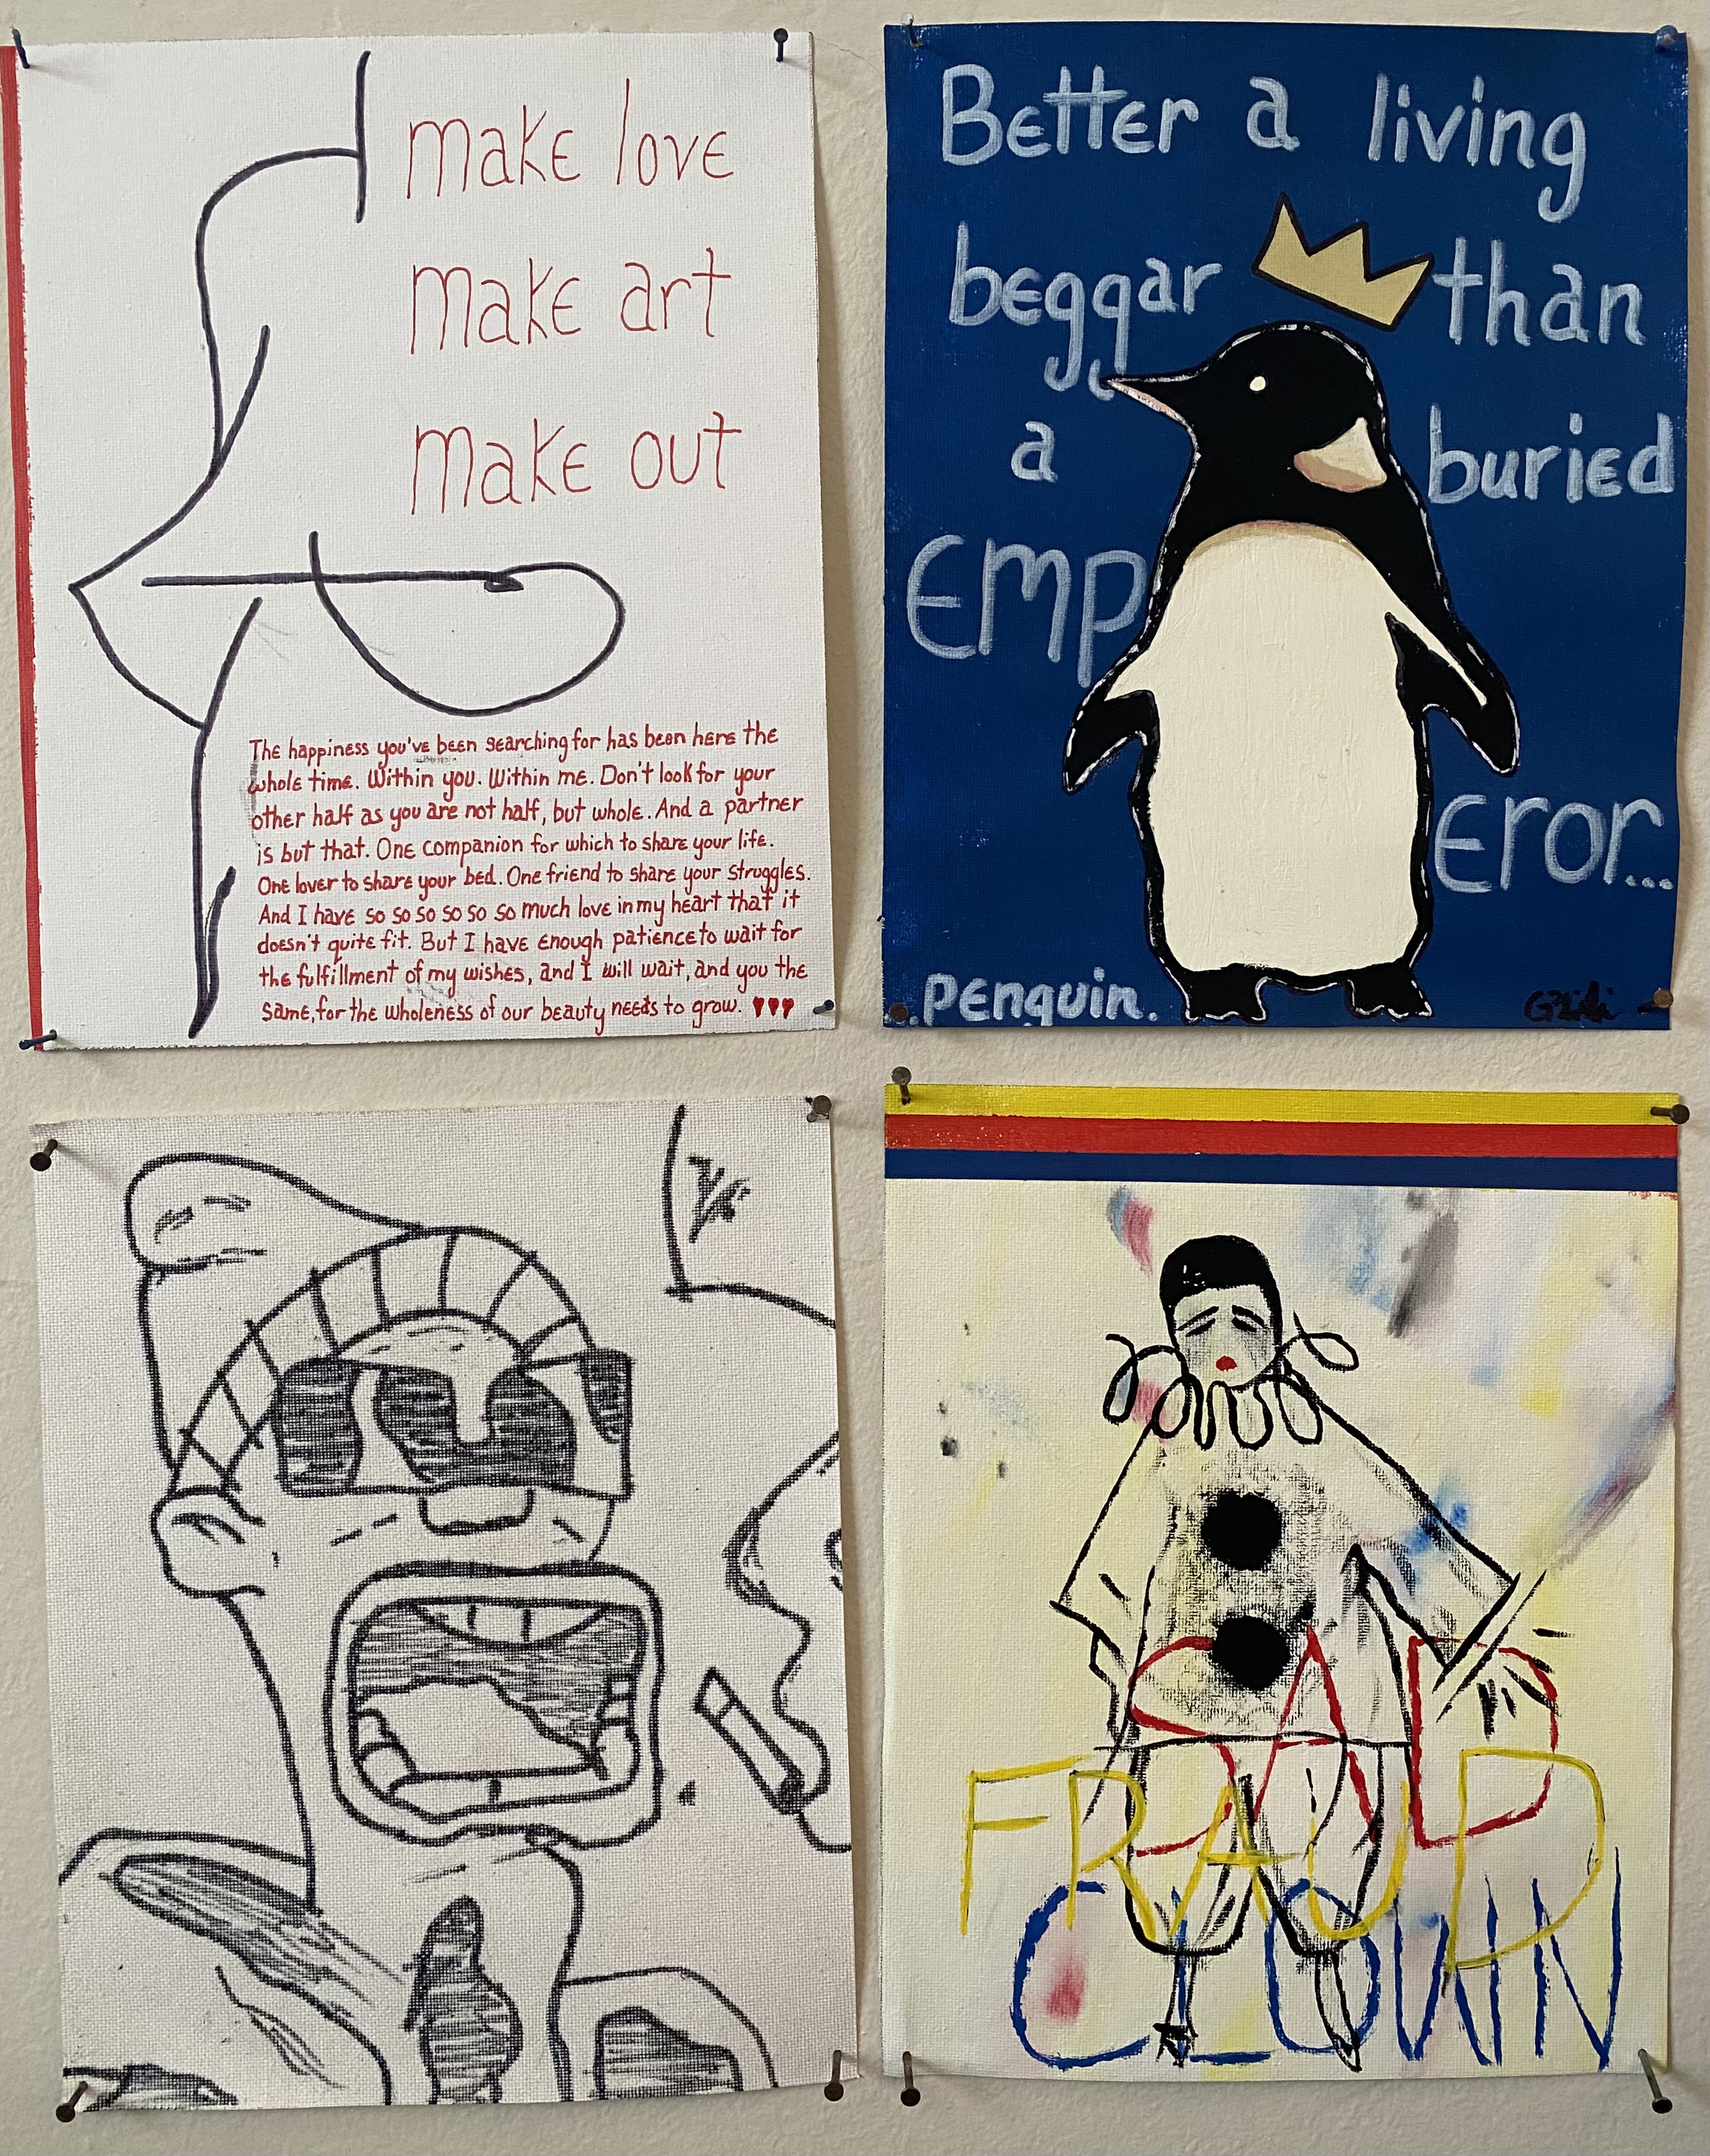 make love
make art
make out
The happiness you've been searching for has been here the
whole time. Within you. Within me. Don't look for your
other half as you are not half, but whole. And a partner
is but that. One companion for which to share your life.
One lover to share your bed. One friend to share your struggles.
And I have so so so so so so much love in my heart that it
doesn't quite fit. But I have enough patience to wait for
the fulfillment of my wishes, and I will wait, and you the
same, for the wholeness of our beauty needs to grow. ♥♥♥
Better a living
beggar than
a buried
Emp
eror...
..Penguin.
SAD
FRAUD
CLOWN